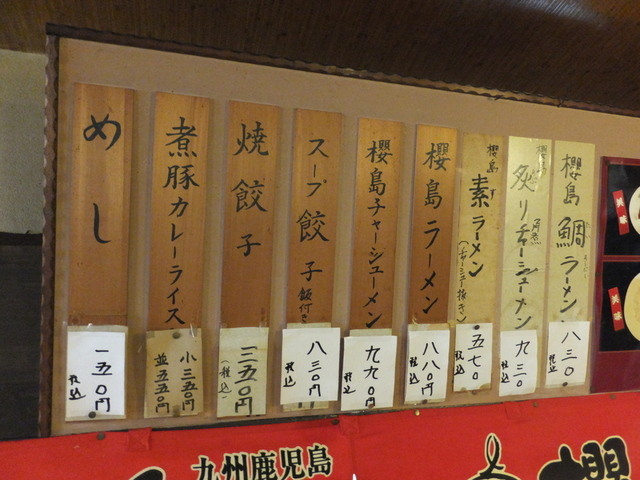 櫻島鯛ラーメン
八三〇
税込
櫻島
炙りチャーシューメン
九三〇
税込
櫻島
素ラーメン
(チャーシュー抜き)
五七〇
税込
櫻島ラーメン
八八〇円
税込
櫻島チャーシューメン
九九〇円
税込
スープ餃子飯付き
八三〇円
税込
焼餃子
三五〇円
(税込)
煮豚カレーライス
小三五〇円
並五五〇円
めし
一五〇円
税込
九州鹿児島
櫻